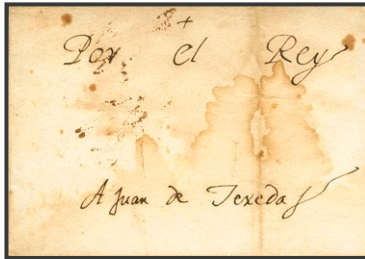 +
Por el Rey
A Juan de Texeda